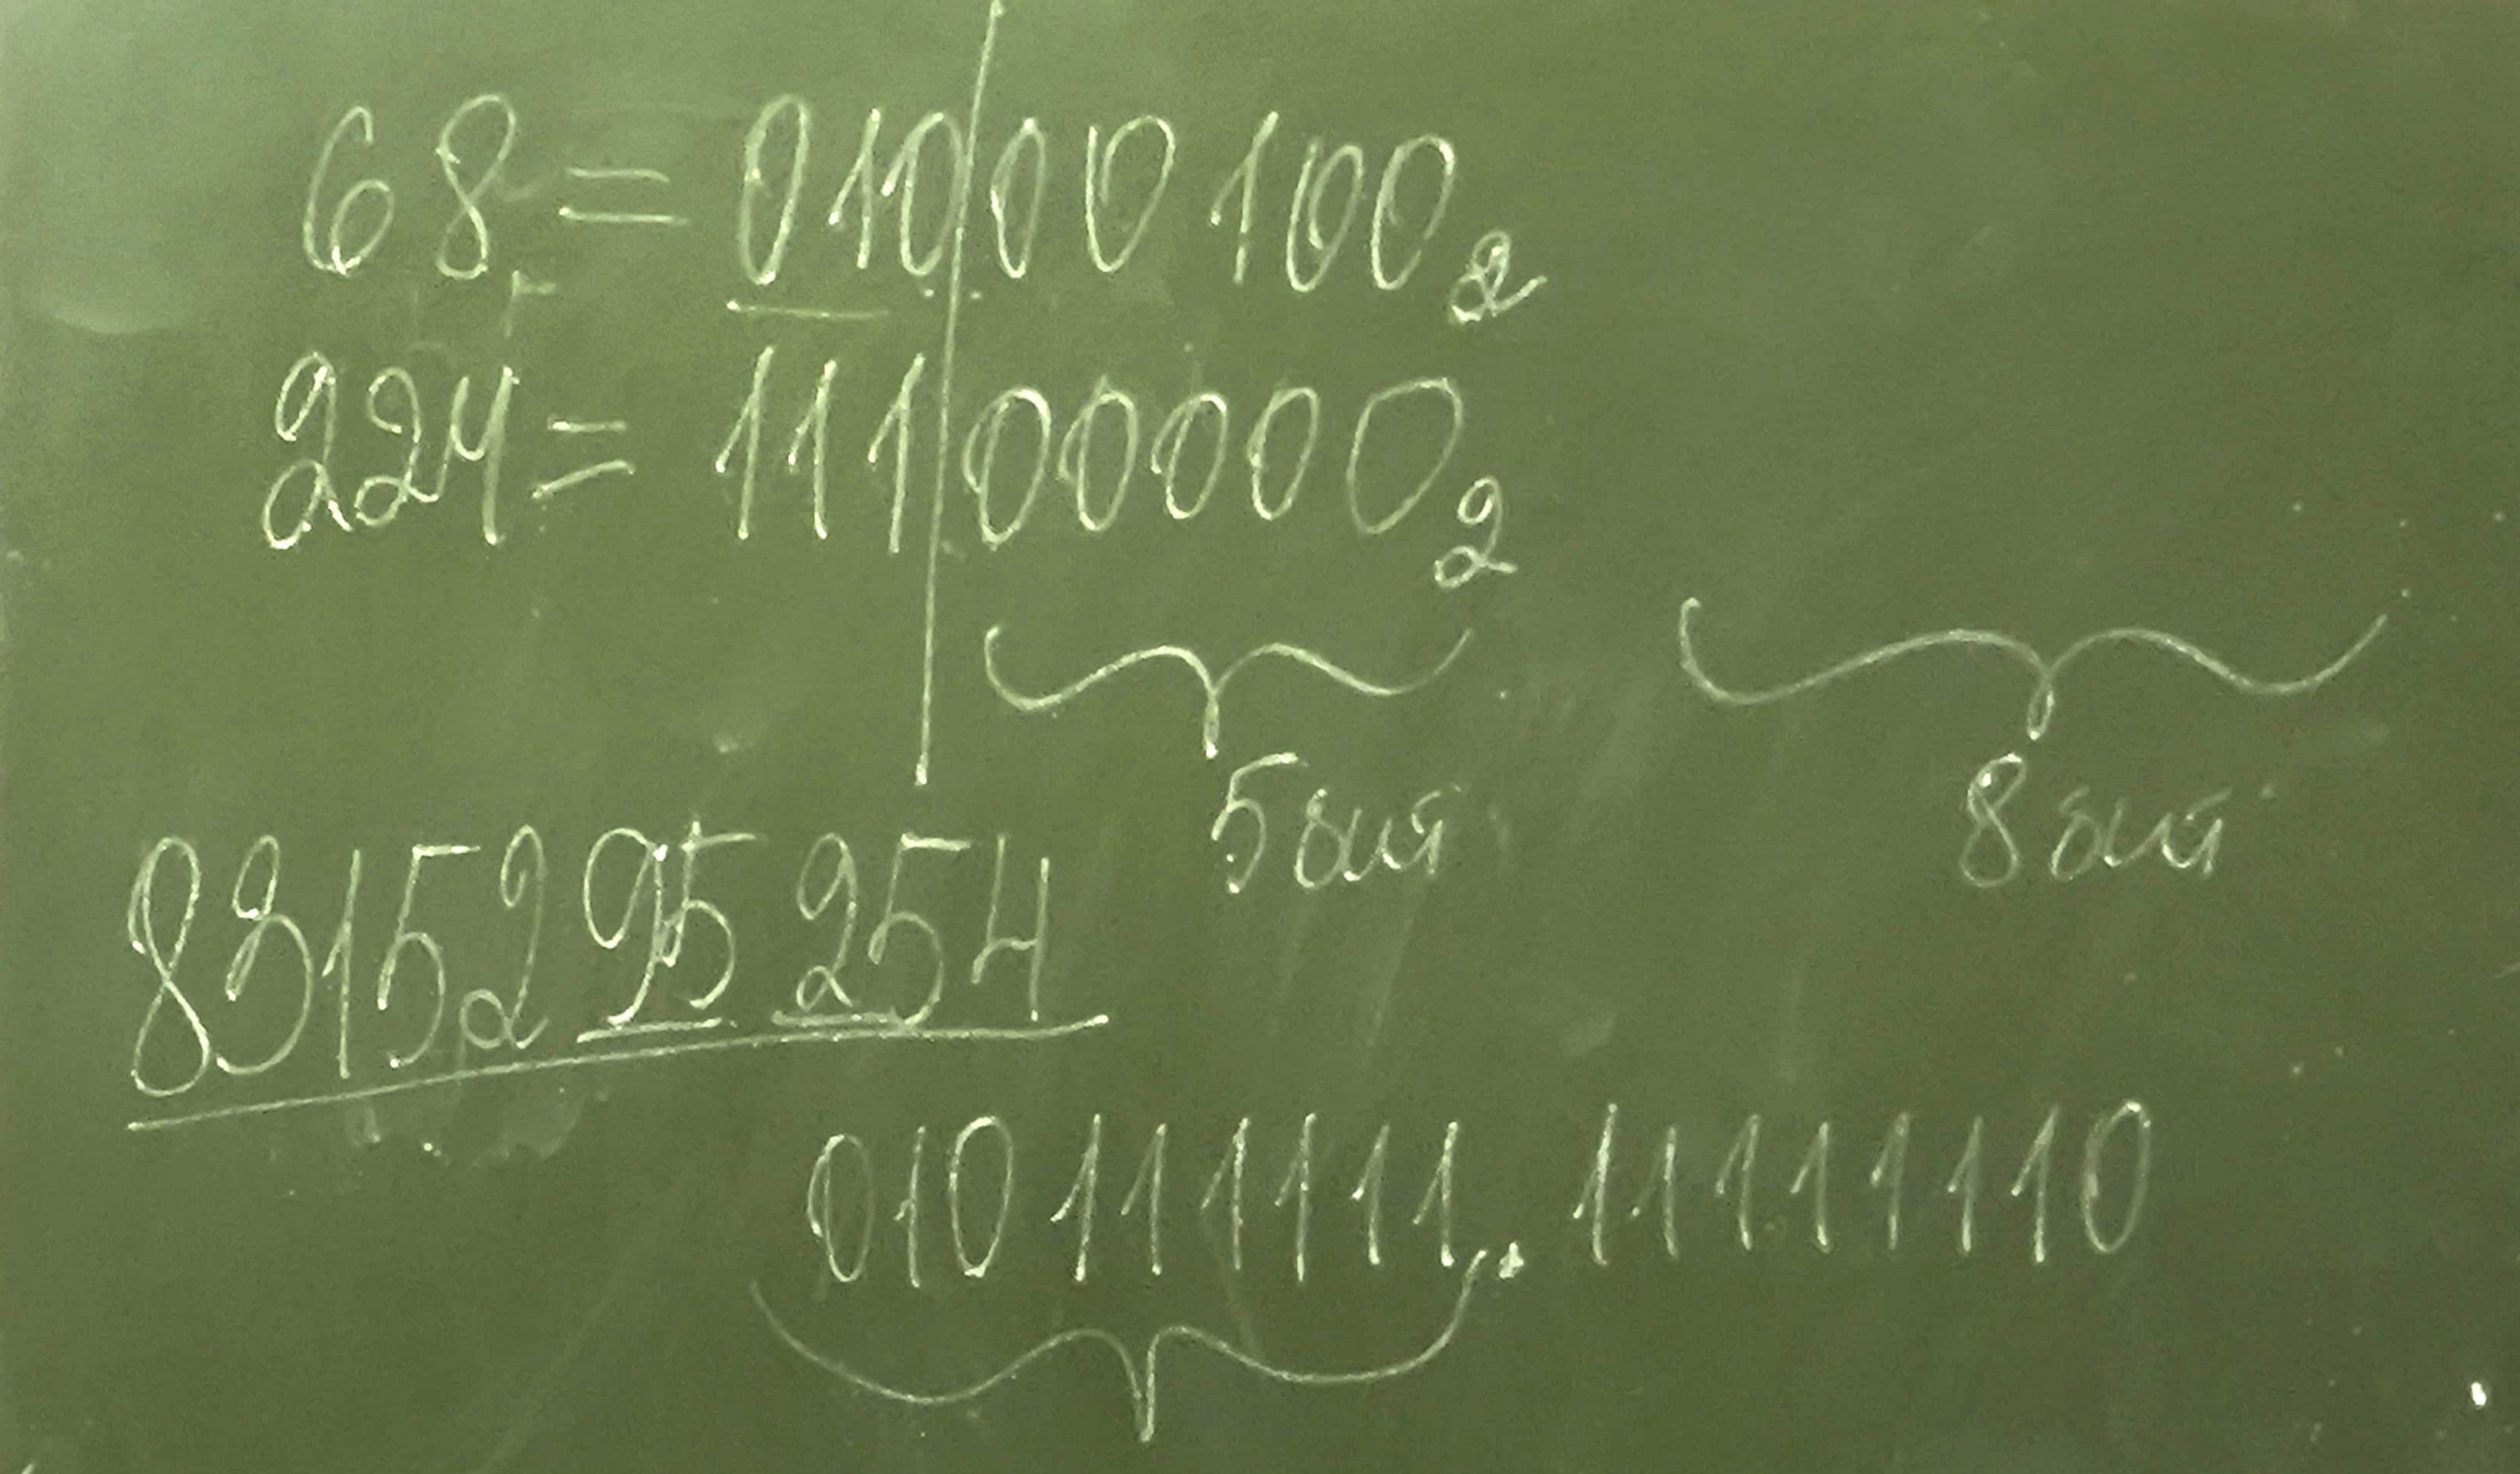 68 = 01000100₂
224 = 11100000₂
5 бит 8 бит
83152 95 254
010111111.11111110